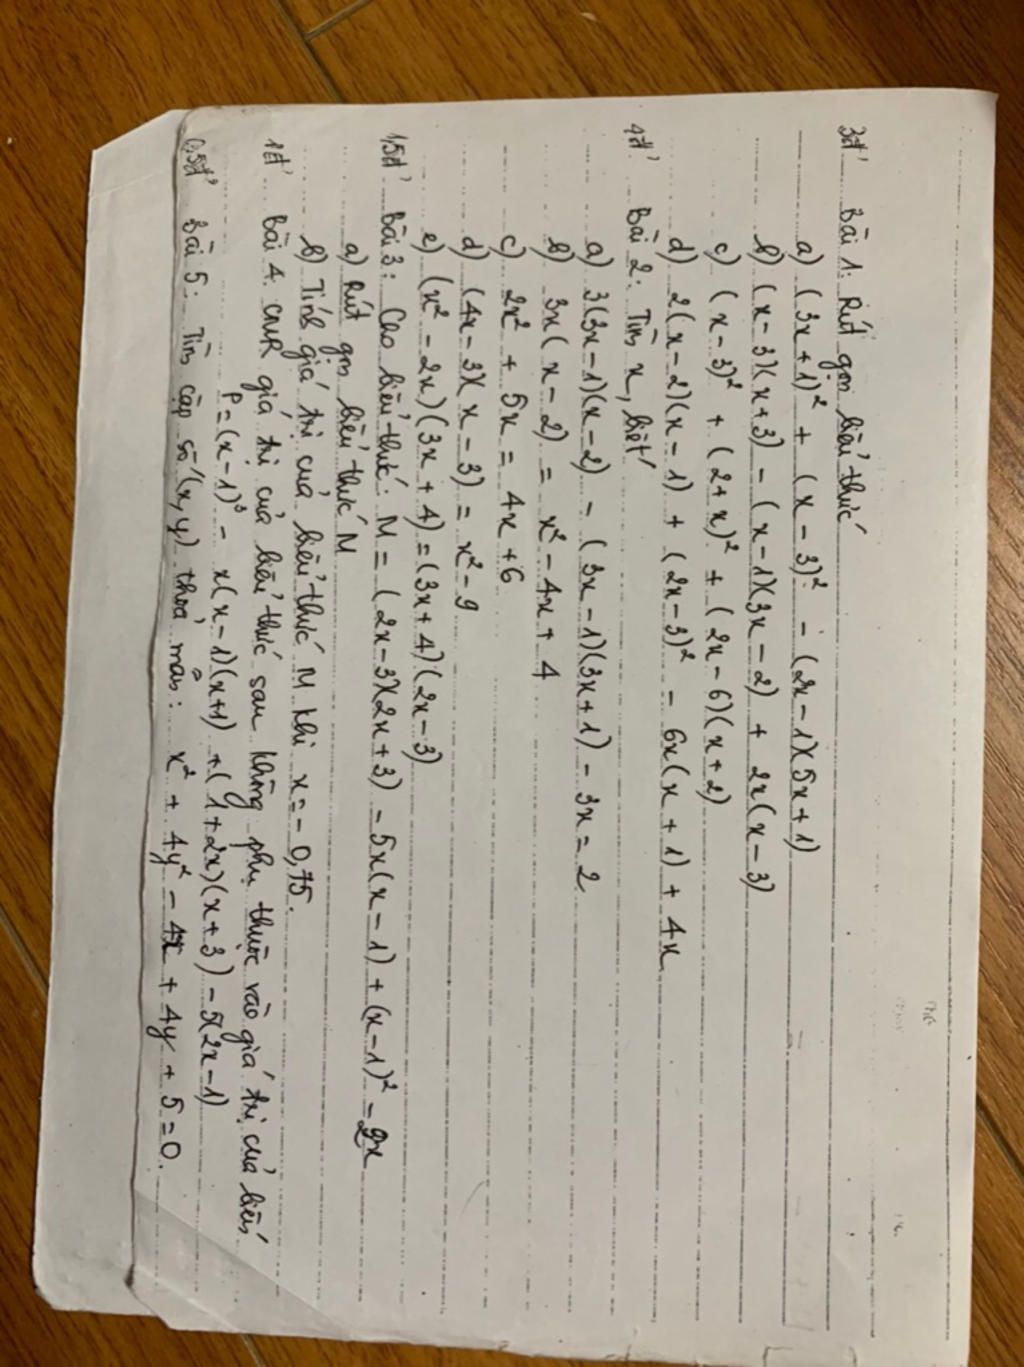 3đ' Bài 1: Rút gọn biểu thức
a) (3x+1)² + (x-3)² - (2x-1)(5x+1)
b) (x-3)(x+3) - (x-1)(3x-2) + 2x(x-3)
c) (x-3)² + (2+x)² + (2x-6)(x+2)
d) 2(x-2)(x-1) + (2x-3)² - 6x(x+1) + 4x
4đ' Bài 2: Tìm x, biết
a) 3(3x-1)(x-2) - (3x-1)(3x+1) - 3x = 2
b) 3x(x-2) = x² - 4x + 4
c) 2x² + 5x = 4x + 6
d) (4x-3)(x-3) = x² - 9
e) (x² - 2x)(3x+4) = (3x+4)(2x-3)
1,5đ' Bài 3: Cho biểu thức M = (2x-3)(2x+3) - 5x(x-1) + (x-1)² - 2x
a) Rút gọn biểu thức M
b) Tính giá trị của biểu thức M khi x = -0,75.
1đ' Bài 4. CMR giá trị của biểu thức sau không phụ thuộc vào giá trị của biến
P = (x-1)³ - x(x-1)(x+1) + (1+2x)(x+3) - 5(2x-1)
0,5đ' Bài 5: Tìm cặp số (x,y) thỏa mãn: x² + 4y² - 4x + 4y + 5 = 0.